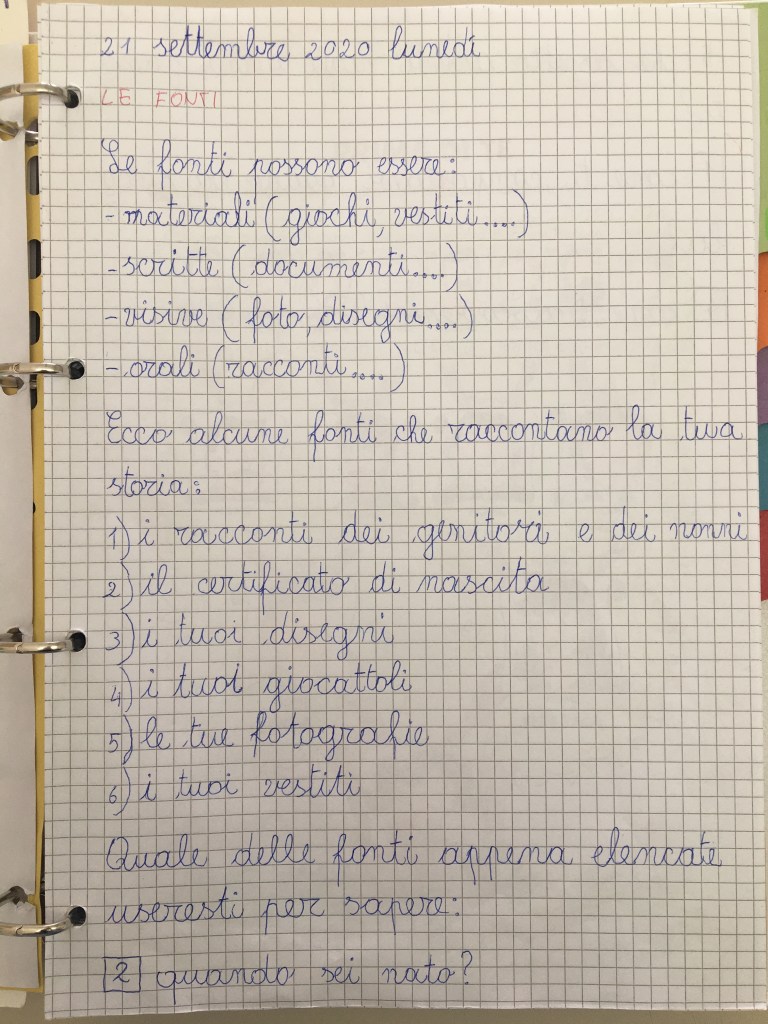 21 settembre 2020 lunedí
LE FONTI
Le fonti possono essere:
- materiali (giochi, vestiti....)
- scritte (documenti....)
- visive (foto, disegni....)
- orali (racconti....)
Ecco alcune fonti che raccontano la tua
storia:
1) i racconti dei genitori e dei nonni
2) il certificato di nascita
3) i tuoi disegni
4) i tuoi giocattoli
5) le tue fotografie
6) i tuoi vestiti
Quale delle fonti appena elencate
useresti per sapere:
2 quando sei nato?